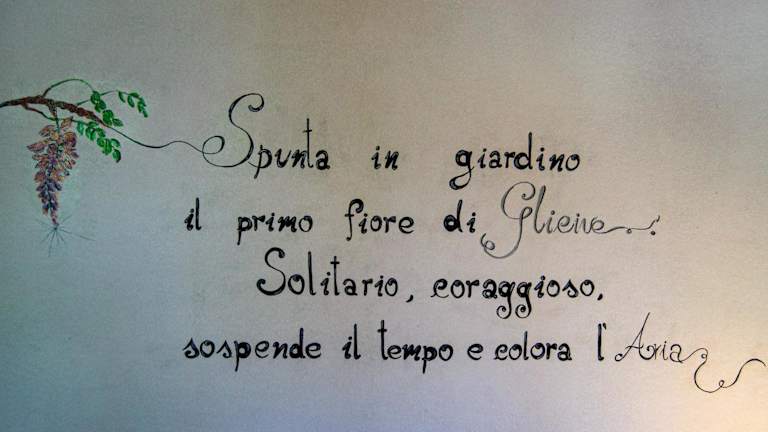 Spunta in giardino
il primo fiore di Glicine.
Solitario, coraggioso,
sospende il tempo e colora l'Aria